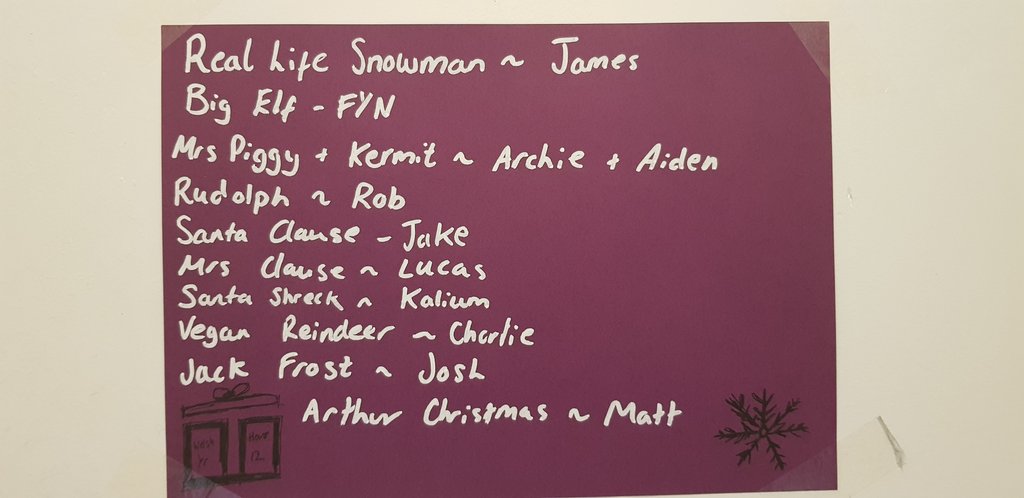 Real Life Snowman ~ James
Big Elf - FYN
Mrs Piggy + Kermit ~ Archie + Aiden
Rudolph ~ Rob
Santa Clause - Jake
Mrs Clause ~ Lucas
Santa Shreck ~ Kalium
Vegan Reindeer ~ Charlie
Jack Frost ~ Josh
Arthur Christmas ~ Matt